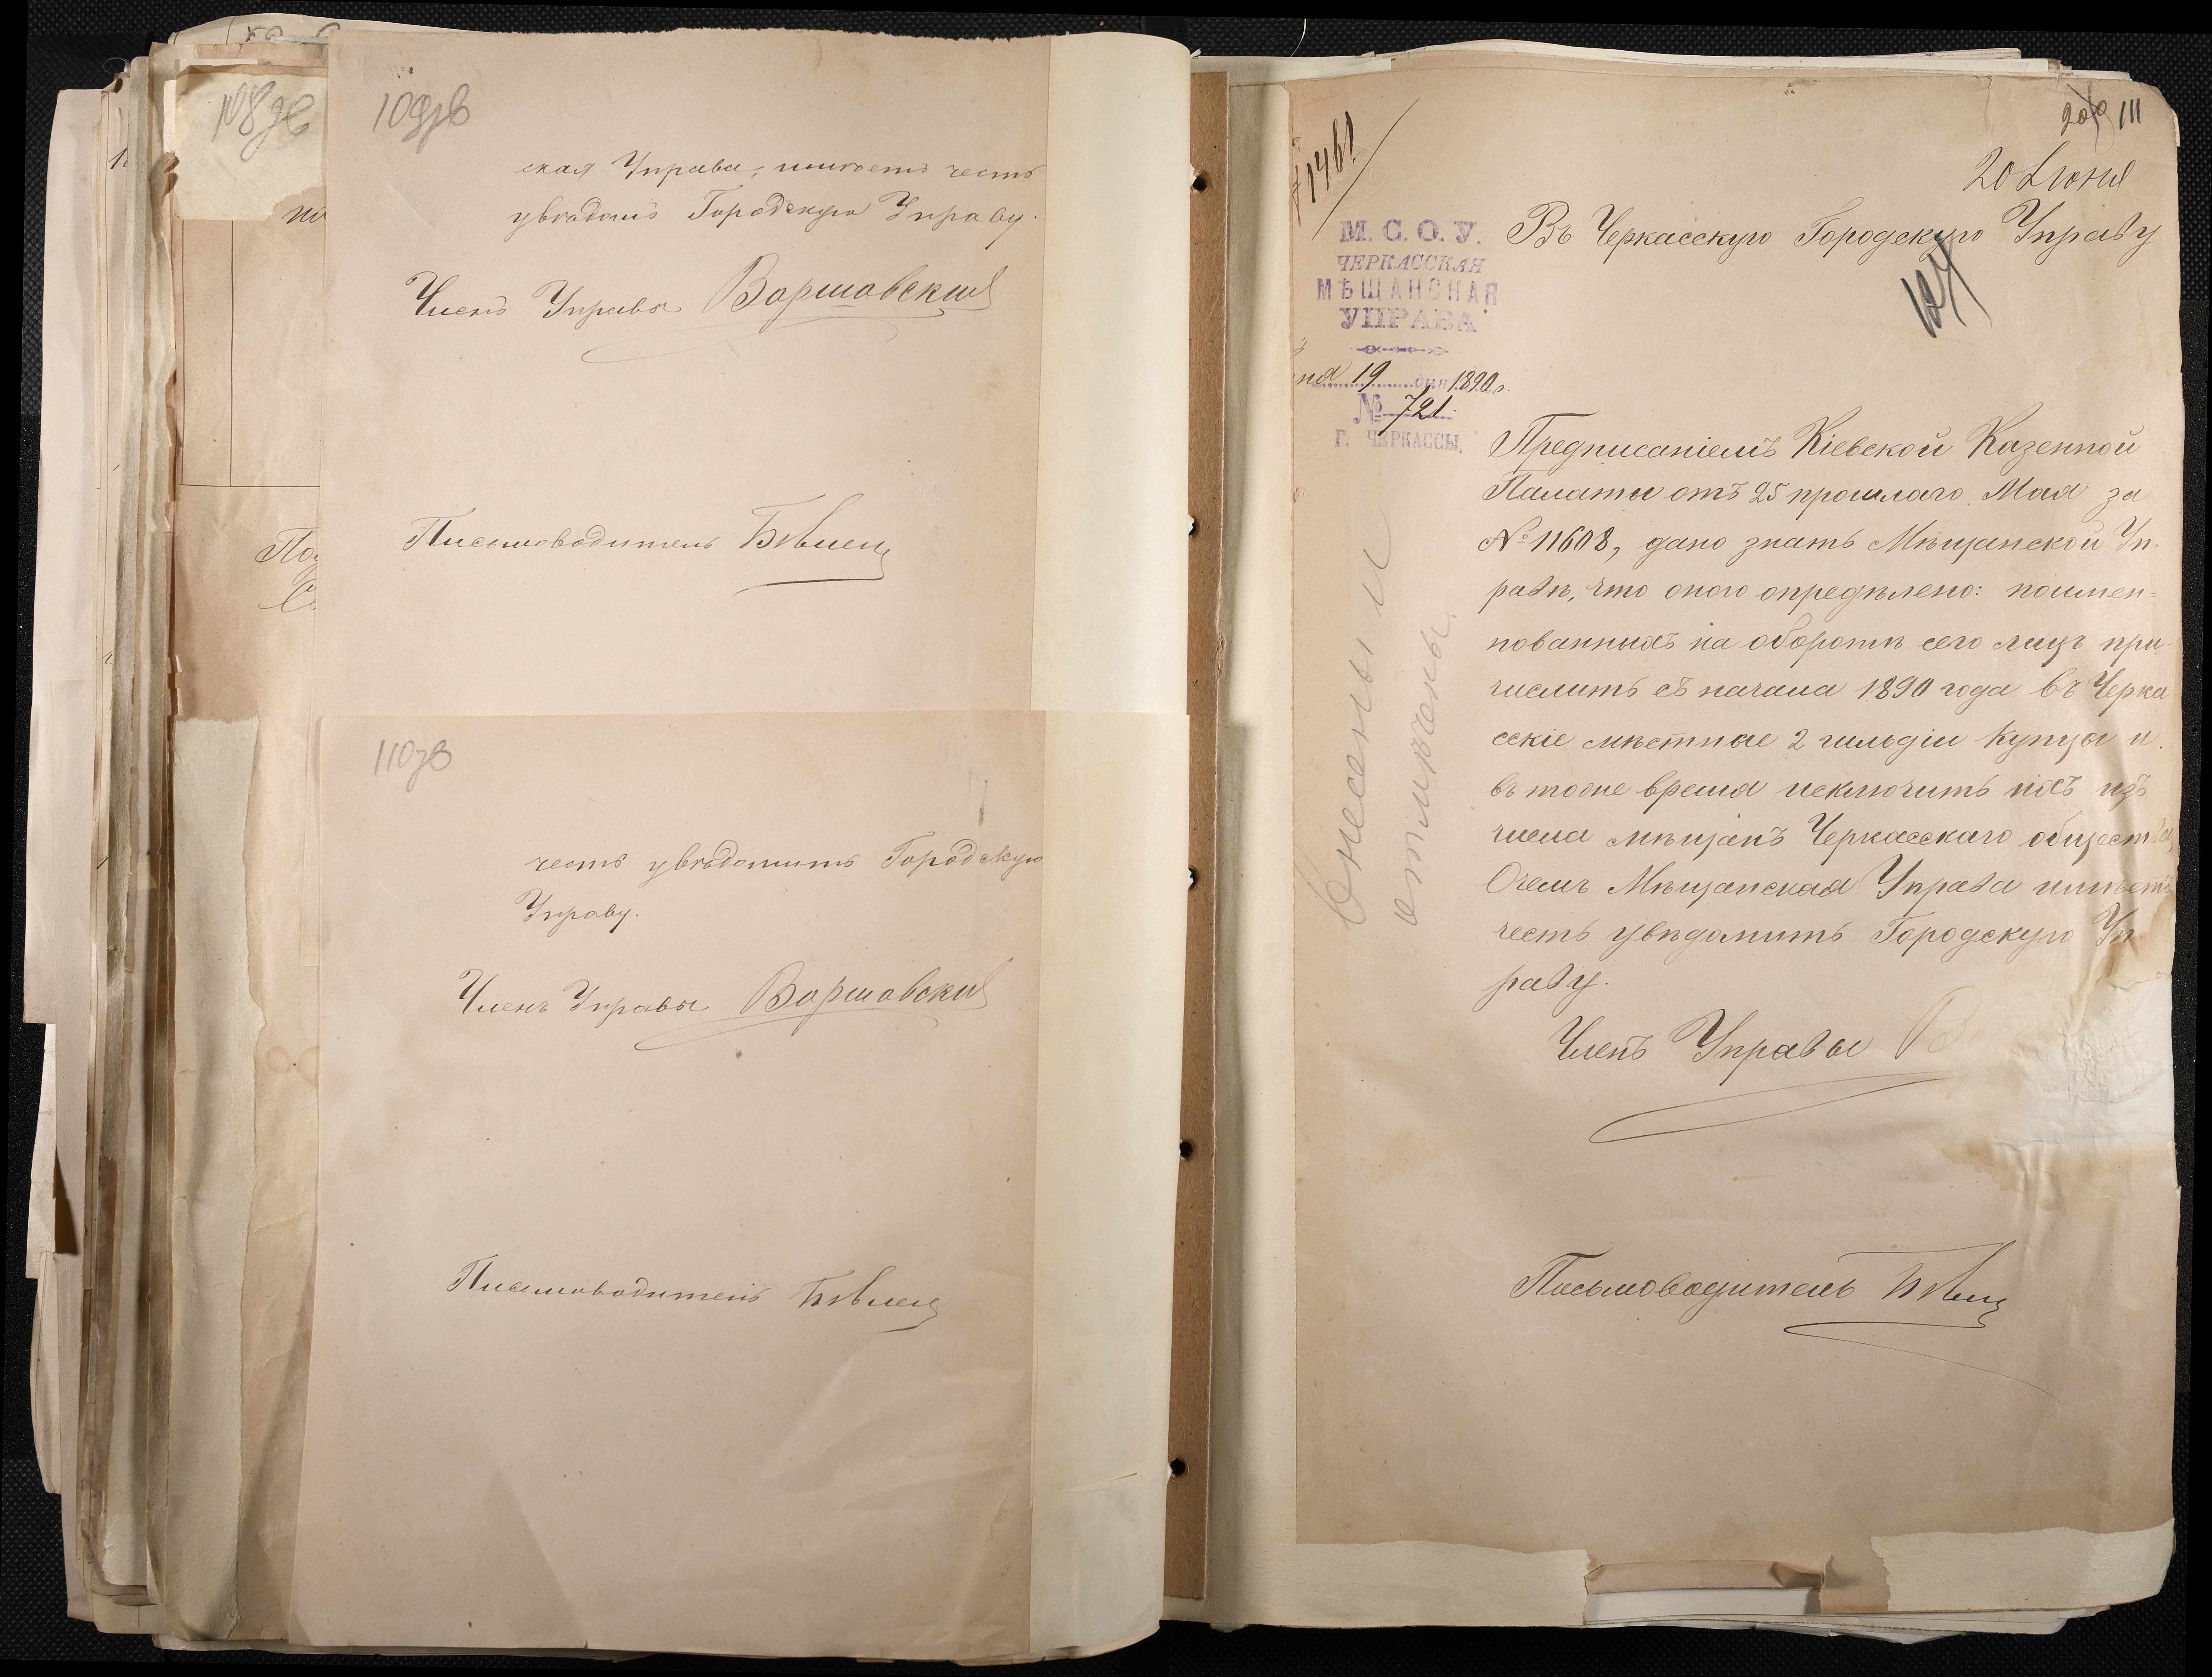 108зв
109зв
ская Управа, имѣетъ честь
увѣдом. Городскую Управу.
Членъ Управы Варшавский
Письмоводитель
110зв
честь увѣдомить Городскую
Управу.
Членъ Управы Варшавский
Письмоводитель
111
20 Іюня
1461
М. С. О. У.
ЧЕРКАССКАЯ
МѢЩАНСКАЯ
УПРАВА
ня 19 дня 1890 г.
№ 721
Г. ЧЕРКАССЫ.
Въ Черкасскую Городскую Управу
Предписаніемъ Кіевской Казенной
Палаты отъ 25 прошлаго Мая за
№ 11608, дано знать Мѣщанской Уп-
равѣ, что оною опредѣлено: поимен=
нованныхъ на оборотѣ сего лицъ при-
числить съ начала 1890 года въ Черка
сскіе мѣстные 2 гильдіи Купцы и
въ тоже время исключить ихъ изъ
числа мѣщанъ Черкасскаго обществ
Очемъ Мѣщанская Управа имѣетъ
честь увѣдомить Городскую Уп
раву.
Членъ Управы В
Письмоводитель
Внесены и
отмѣчены.